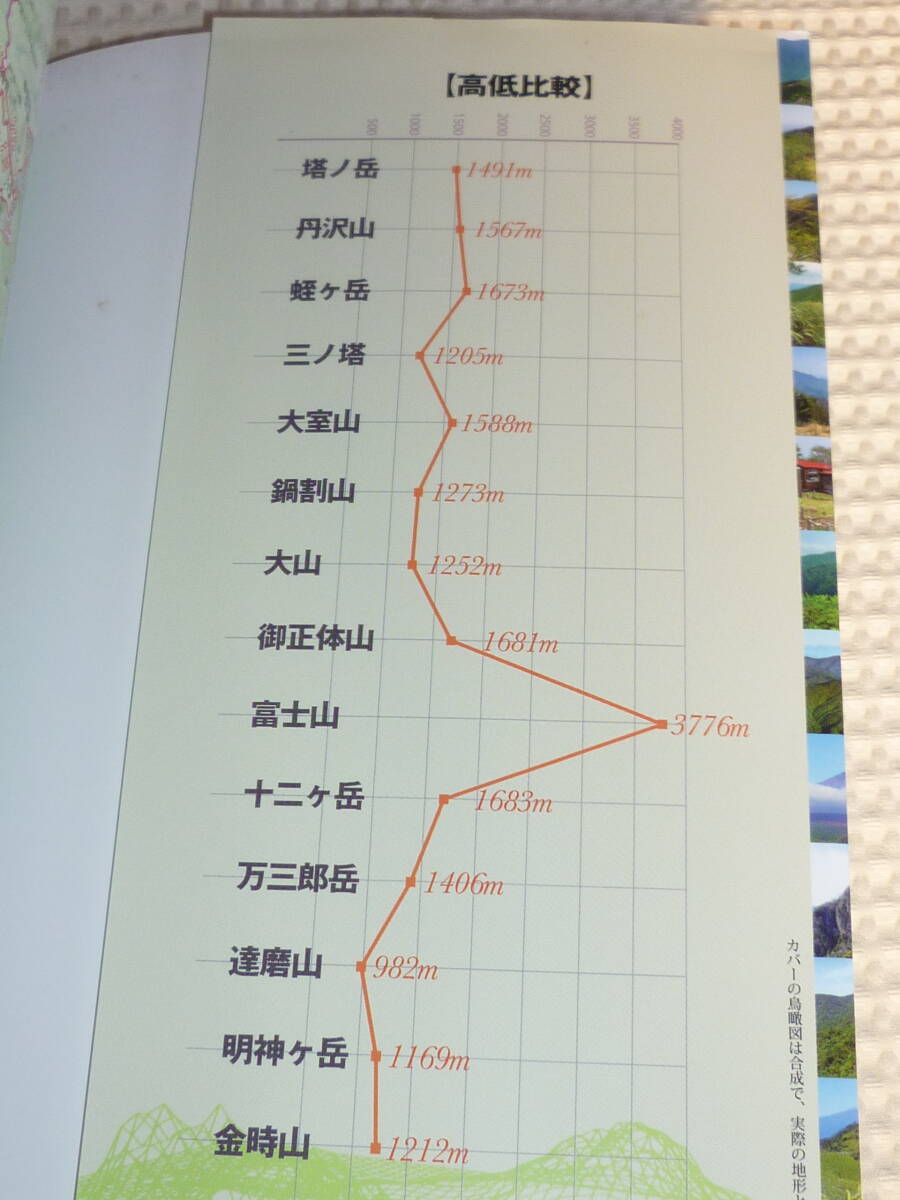 【高低比較】
500 1000 1500 2000 2500 3000 3500 4000
塔ノ岳 1491m
丹沢山 1567m
蛭ヶ岳 1673m
三ノ塔 1205m
大室山 1588m
鍋割山 1273m
大山 1252m
御正体山 1681m
富士山 3776m
十二ヶ岳 1683m
万三郎岳 1406m
達磨山 982m
明神ヶ岳 1169m
金時山 1212m
カバーの鳥瞰図は合成で、実際の地形と